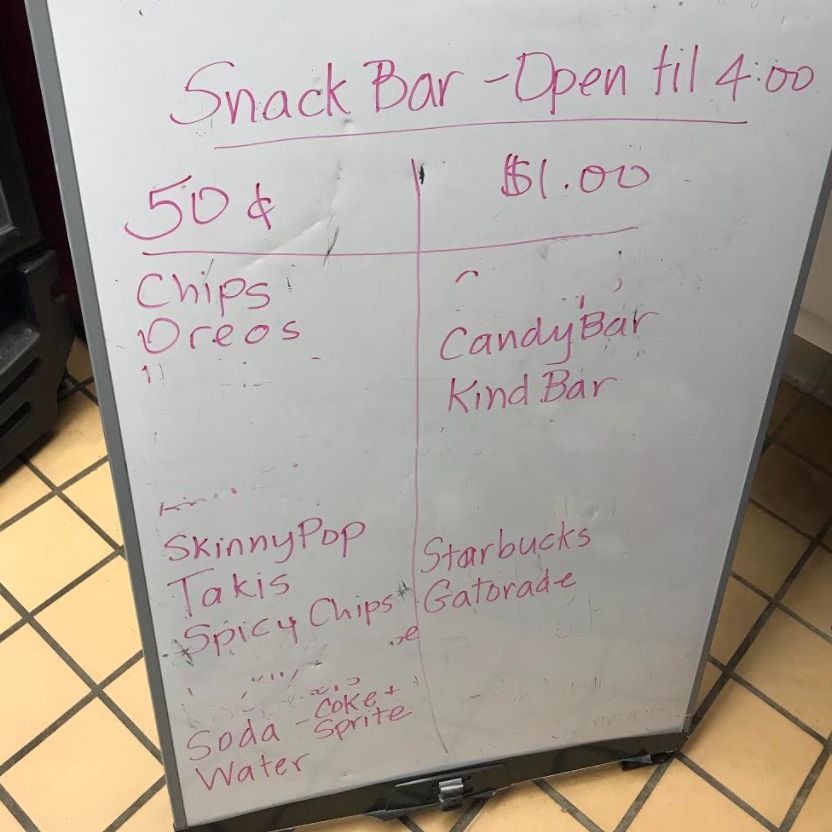 Snack Bar - Open til 4:00
50¢
$1.00
Chips
Oreos
SkinnyPop
Takis
Spicy Chips
Soda - Coke + Sprite
Water
Candy Bar
Kind Bar
Starbucks
Gatorade